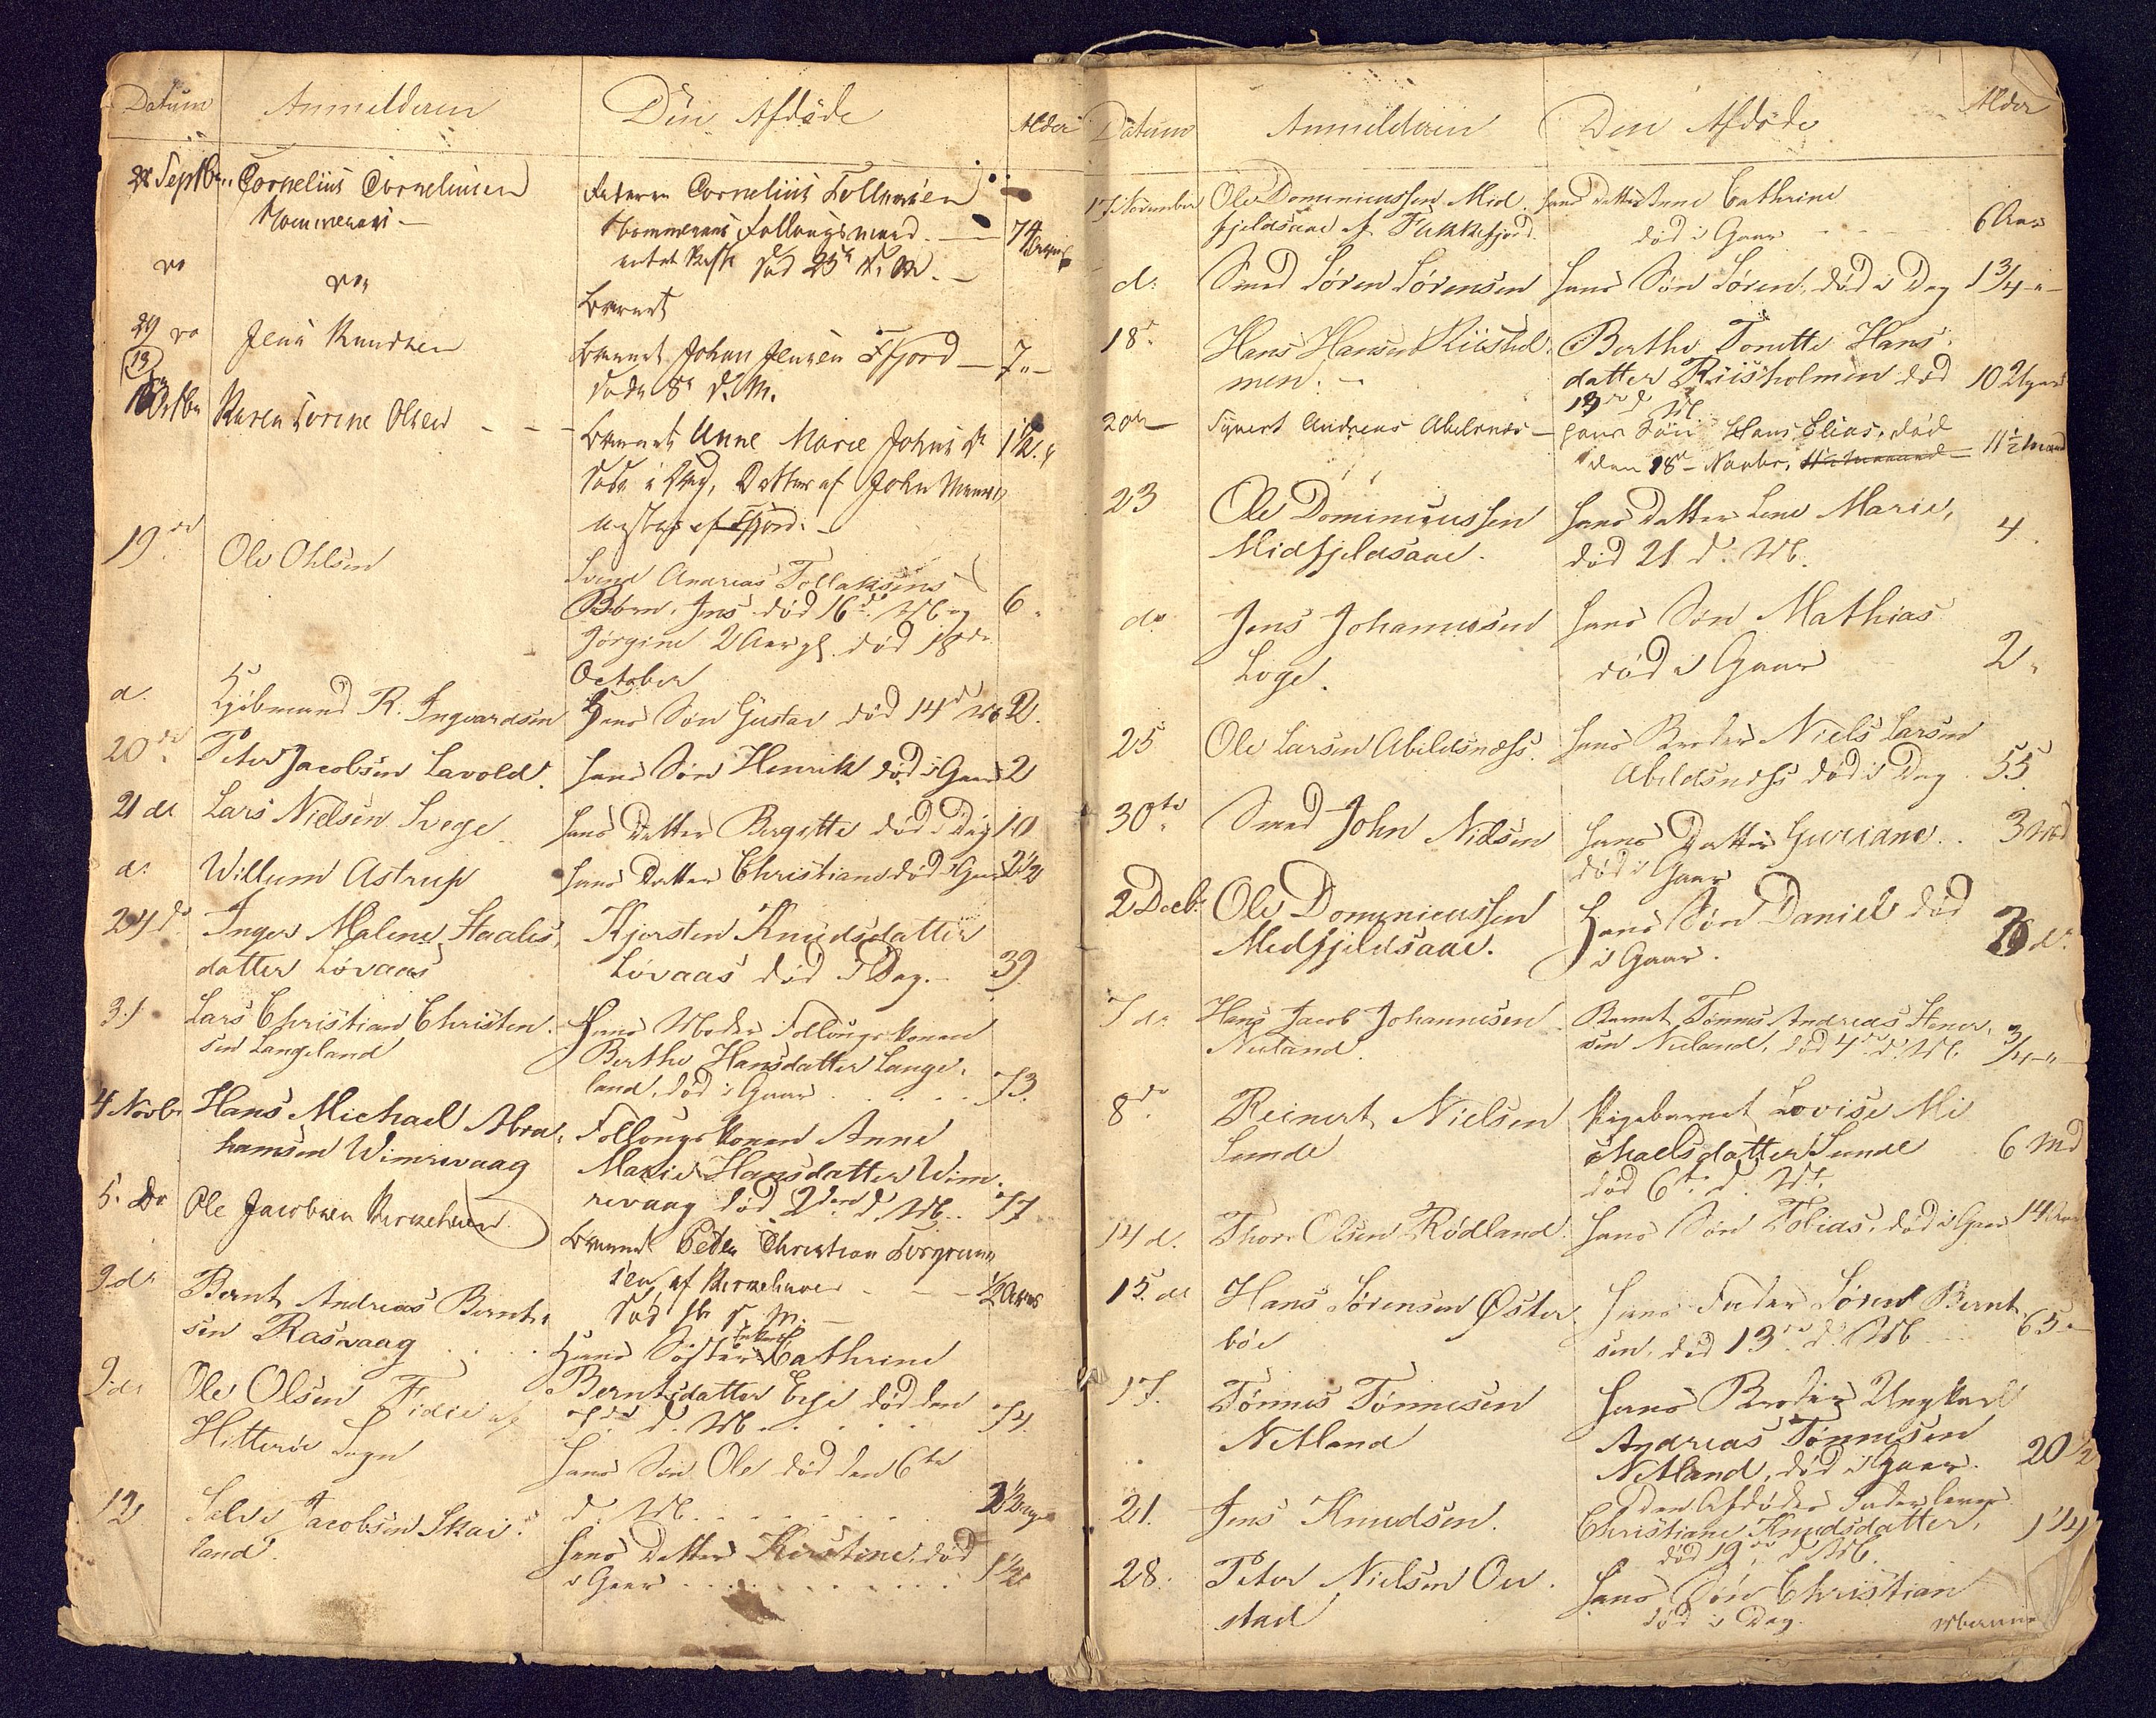 Datum Anmelderen Den Afdøde Alder
28 Septbr. Cornelius Corneliusen
Faderen Cornelius Tollevsen
74
død 25de d. M.
do do
Barnet
29 do Jens Knudsen
Barnet Johan Jensen Fjord 7
døde 8de d. M.
13
Octbr Karen Torine Olsen
Barnet Anne Marie Johnsd. 1 1/2
døde i Dag, Datter af John
af Fjord.
19de Ole Ohlsen
Svend Andreas Tollaksens
Børn, Jens død 16de d. M. og 6
Jørgine 2 Aar gl. død 18de
October
d. Kjøbmand R. Ingvardsen Hans Søn Gustav død 14d Mb 2.
20de Peter Jacobsen Lavold. Hans Søn Henrik død i Gaar 2
21 de Lars Nielsen Svege Hans Datter Bergitte død i Dag 10
d. Willum Astrup Hans Datter Christiane død i Gaar 2 1/2
24 d. Inger Malene Staales,
datter Løvaas
Kjersten Knudsdatter
Løvaas død i Dag. 39
31 Lars Christian Christen.
sen Langeland
Hans Moder Follougskonen
Berthe Hansdatter Lange,
land, død i Gaar 73.
4 Novbr Hans Michael Abra,
hamsen Wimrevaag
Follougskonen Anne
Marie Hansdatter Wim.
revaag død 2den d. Mb. 77
5. Do Ole Jacobsen Kirkehavn
Barnet Peder Christian Torgrim
sen af Kirkehavn 1/2 Aar
død d. M.
9 d. Bernt Andreas Bernt,
sen Rasvaag
Hans Søster Enken Cathrine
Berntsdatter Eje død den
7de d. Mb. 74
9 d. Ole Olsen Fidie af
Hitterøe Sogn
Hans Søn Ole død den 6te
d. Mb.
12 Salve Jacobsen Skai.
land.
Hans Datter Kirstine, død
i Gaar 1 1/2
Datum Anmelderen Den Afdøde Alder
17 November Ole Dominicussen Mid
fjeldsaae af Flekkefjord.
Hans Datter Anne Cathrine
død i Gaar 6 Aar
d. Smed Søren Sørensen Hans Søn Søren, død i Dag 1 3/4 "
18d. Hans Hansen Riishol.
men.
Berthe Tonette Hans.
datter Riisholmen død 10 Uger
13de d. M
20de Sywert Andreas Abelsnes
Hans Søn Hans Elias, død
den 18de Novbr. 11 1/2 Maaned
23 Ole Dominicussen
Midfjeldsaae.
Hans Datter Lene Marie,
død 21 d. Mb. 4
do Jens Johannesen
Loge.
Hans Søn Mathias
død i Gaar 2
25 Ole Larsen Abildsnæss.
Hans Broder Niels Larsen
Abildsnæss død i Dag. 55
30te Smed John Nielsen
Hans Datter Guriane. 3 Md
død i Gaar
2 Decb. Ole Dominicussen
Midfjeldsaae.
Hans Søn Daniel død
i Gaar.
7 d. Hans Jacob Johannesen
Nuland.
Barnet Tønnes Andreas Stener,
sen Nuland, død 4de d. Mb. 3/4 "
8de Reinert Nielsen
Sunde
Pigebarnet Lovise Mi
chaelsdatter Sunde 6 Md
død 6te d. Mb.
14 d. Thore Olsen Rødland Hans Søn Tobias, død i Gaar 14 Aar
15 de Hans Sørensen Øster.
bøe
Hans Fader Søren Bernt
sen, død 13de d. Mb 65
17. Tønnes Tønnesen
Netland
Hans Broder Ungkarl
Andreas Tønnesen
Netland, død i Gaar. 20 1/2
21. Jens Knudsen.
den Afdødes Fader lever
Christiane Knudsdatter, 1 1/4
død 19de d. Mb.
28. Peter Nielsen Ou.
stad
Hans Søn Christian
død i Dag.